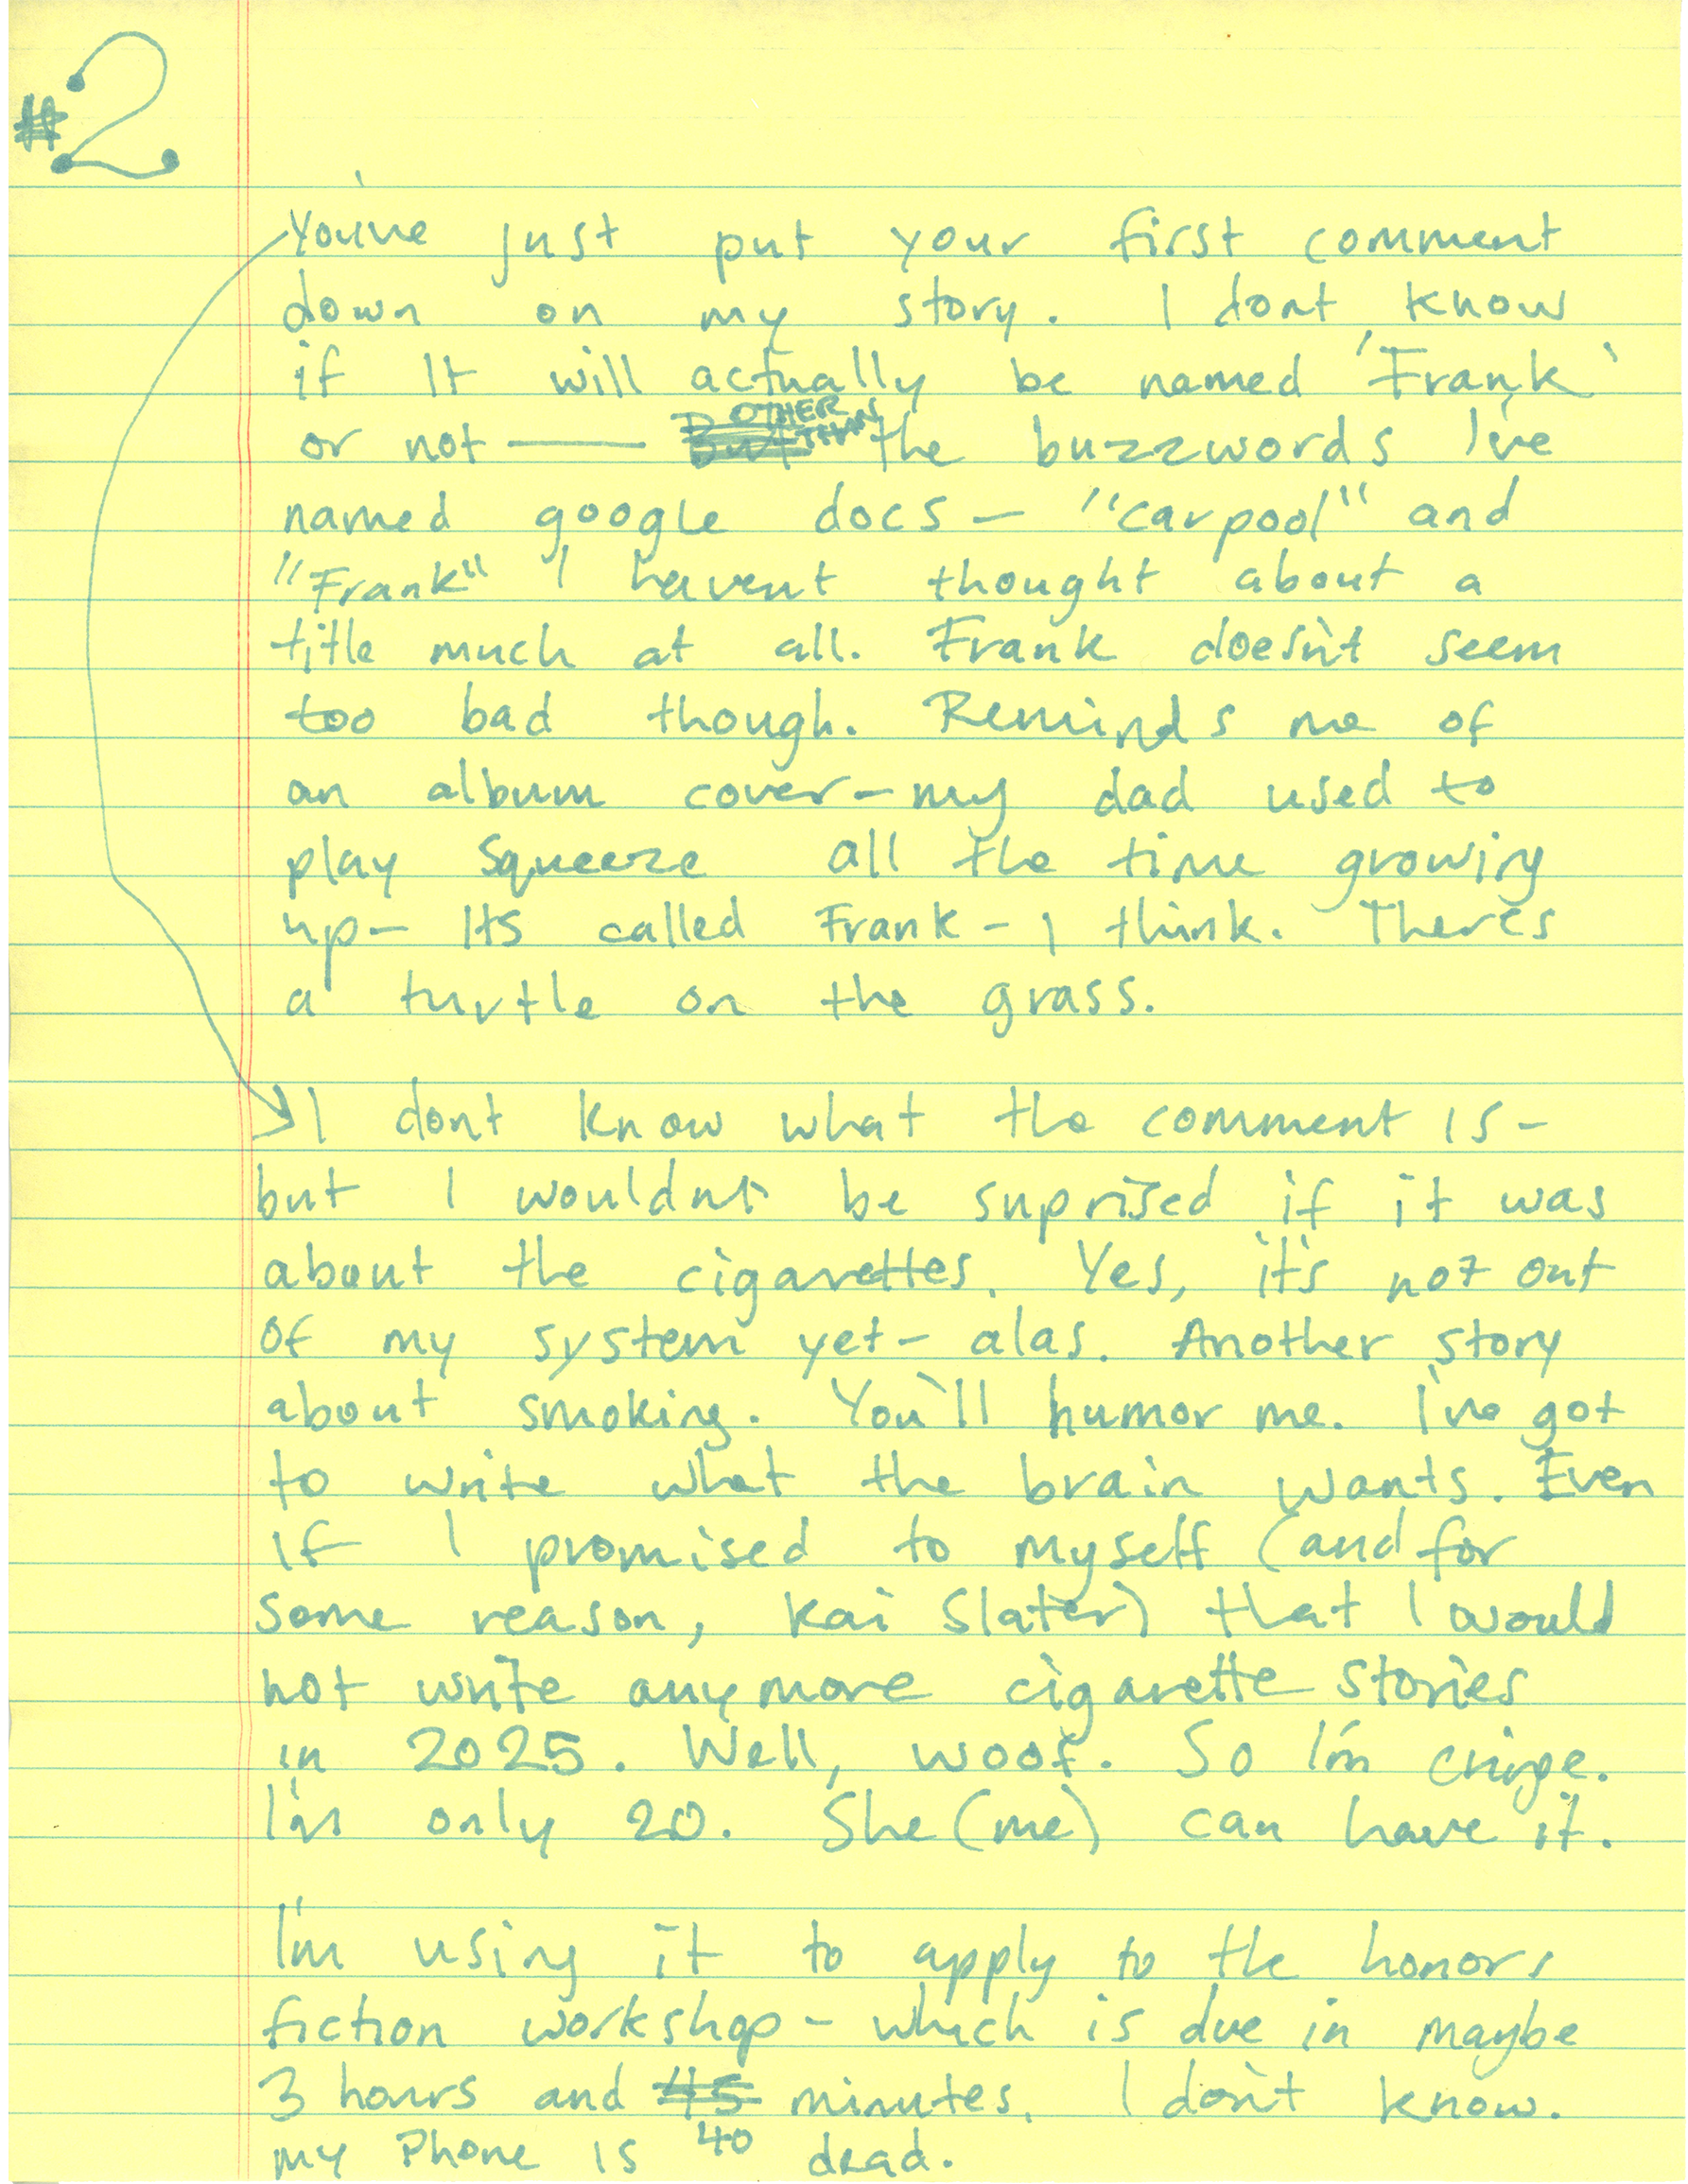 #2
You've just put your first comment
down on my story. I dont know
if It will actually be named 'Frank'
or not —— But OTHER THAN the buzzwords I've
named google docs — "carpool" and
"Frank" I havent thought about a
title much at all. Frank doesn't seem
too bad though. Reminds me of
an album cover - my dad used to
play Squeeze all the time growing
up - Its called Frank - I think. There's
a turtle on the grass.
I dont know what the comment is -
but I wouldnt be suprised if it was
about the cigarettes. Yes, it's not out
of my system yet - alas. Another story
about smoking. You'll humor me. I've got
to write what the brain wants. Even
if I promised to myself (and for
some reason, Kai Slater) that I would
not write anymore cigarette stories
in 2025. Well, woof. So I'm cringe.
I'm only 20. She (me) can have it.
I'm using it to apply to the honors
fiction workshop - which is due in maybe
3 hours and 45 minutes. I don't know.
my Phone is 40 dead.